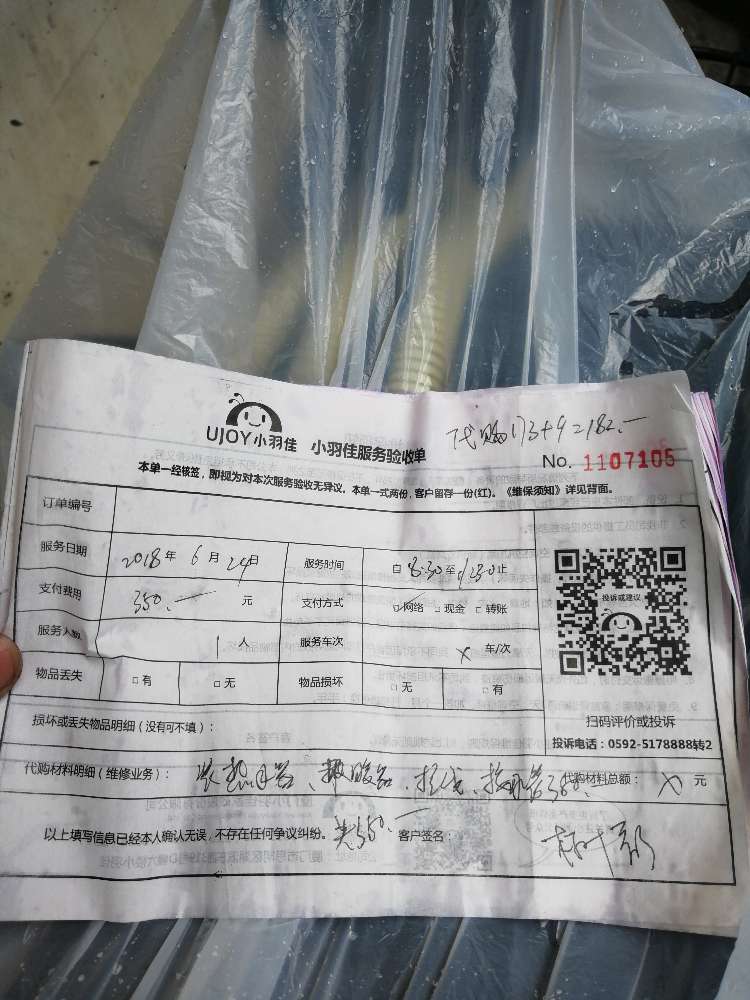 UJOY小羽佳 小羽佳服务验收单
代购173+9=182.-
No. 1107105
本单一经核签，即视为对本次服务验收无异议。本单一式两份，客户留存一份(红)。《维保须知》详见背面。
订单编号
服务日期 2018年6月24日 服务时间 自8:30至 止
支付费用 350.- 元 支付方式 ☑网络 □现金 □转账
服务人数 1人 服务车次 × 车/次
物品丢失 □有 □无 物品损坏 □无 □有
投诉或建议
扫码评价或投诉
投诉电话：0592-5178888转2
损坏或丢失物品明细（没有可不填）：
代购材料明细（维修业务）： 装热水器、 350.- 代购材料总额： × 元
以上填写信息已经本人确认无误，不存在任何争议纠纷。 客户签名：